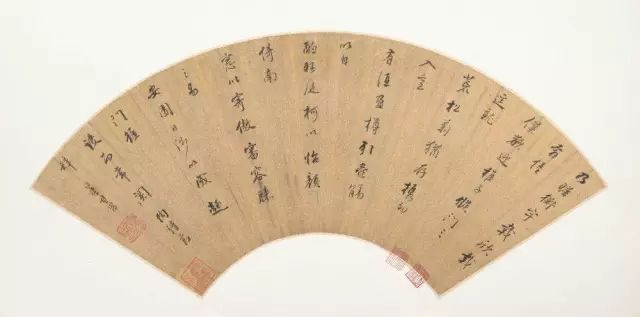 乃瞻衡宇載欣載
奔僮
僕歡迎稚子候門三
徑就
荒松菊猶存攜幼
入室
有酒盈樽引壺觴
以自
酌眄庭柯以怡顏
倚南
窗以寄傲審容膝
之易
安園日涉以成趣
門雖
設而常關
董其昌